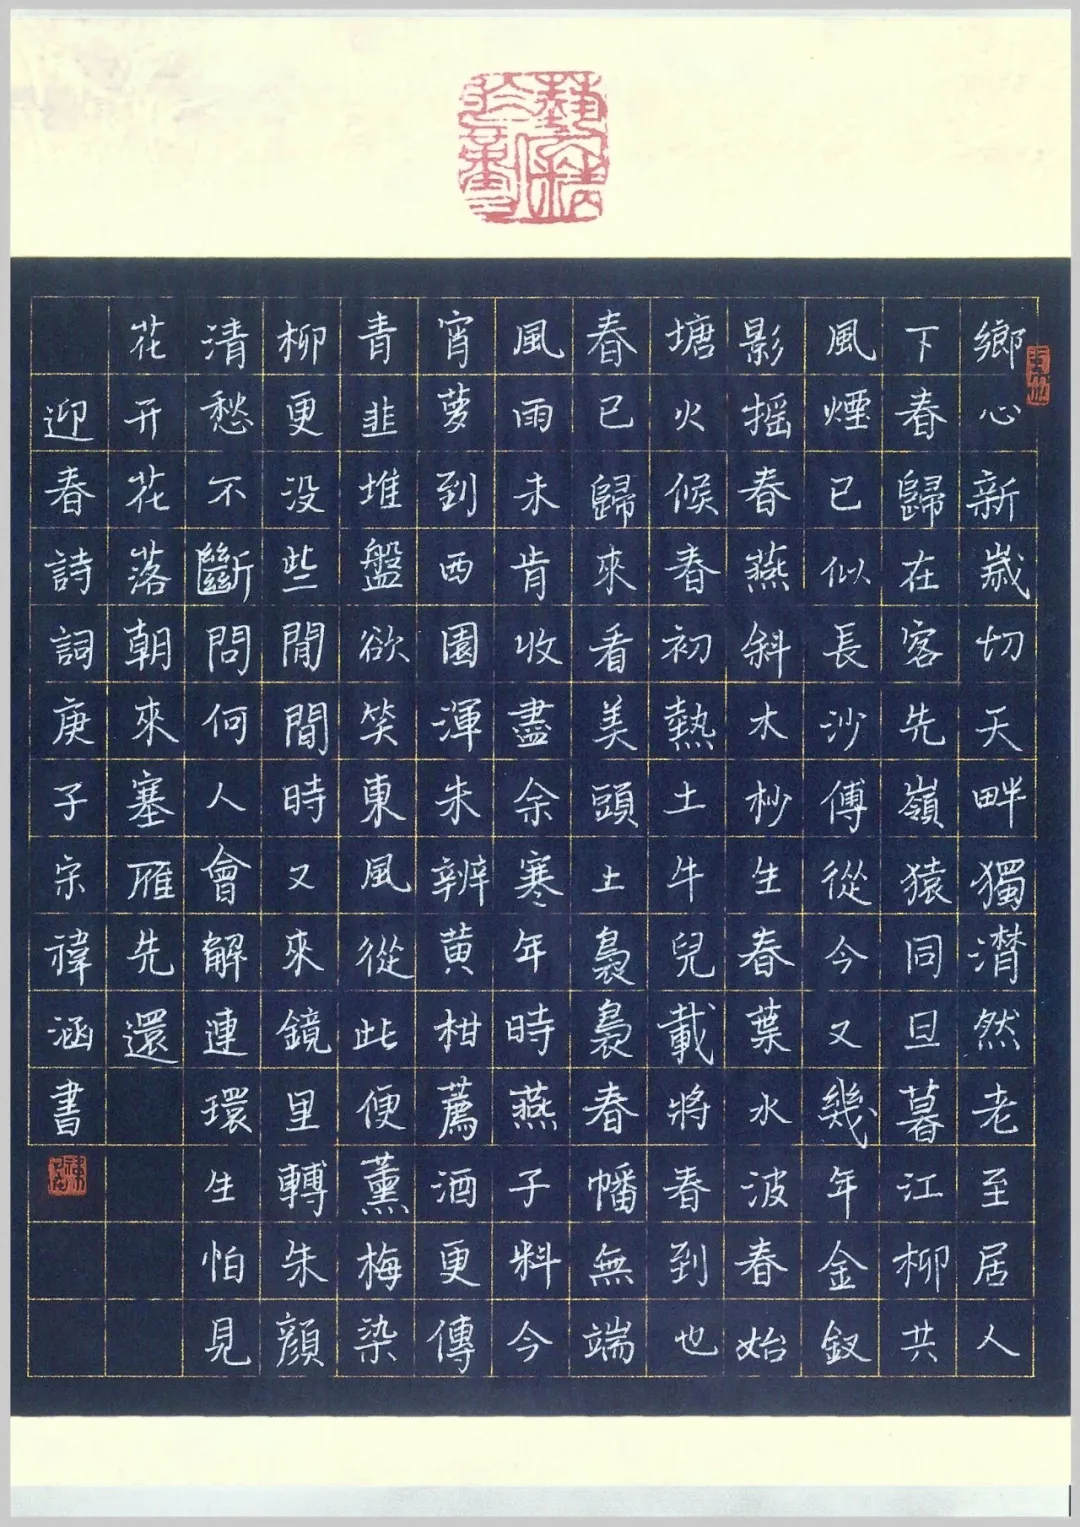 鄉心新歲切天畔獨潸然老至居人
下春歸在客先嶺猿同旦暮江柳共
風煙已似長沙傅從今又幾年金釵
影摇春燕斜木杪生春葉水波春始
塘火候春初熱土牛兒載將春到也
春已歸來看美頭土裊裊春幡無端
風雨未肯收盡余寒年時燕子料今
宵萝到西園渾未辨黄柑薦酒更傳
青韭堆盤欲笑東風從此便薰梅染
柳更没些閒間時又來鏡里轉朱顔
清愁不斷問何人會解連環生怕見
花开花落朝來塞雁先還
迎春詩詞庚子宗禕涵書